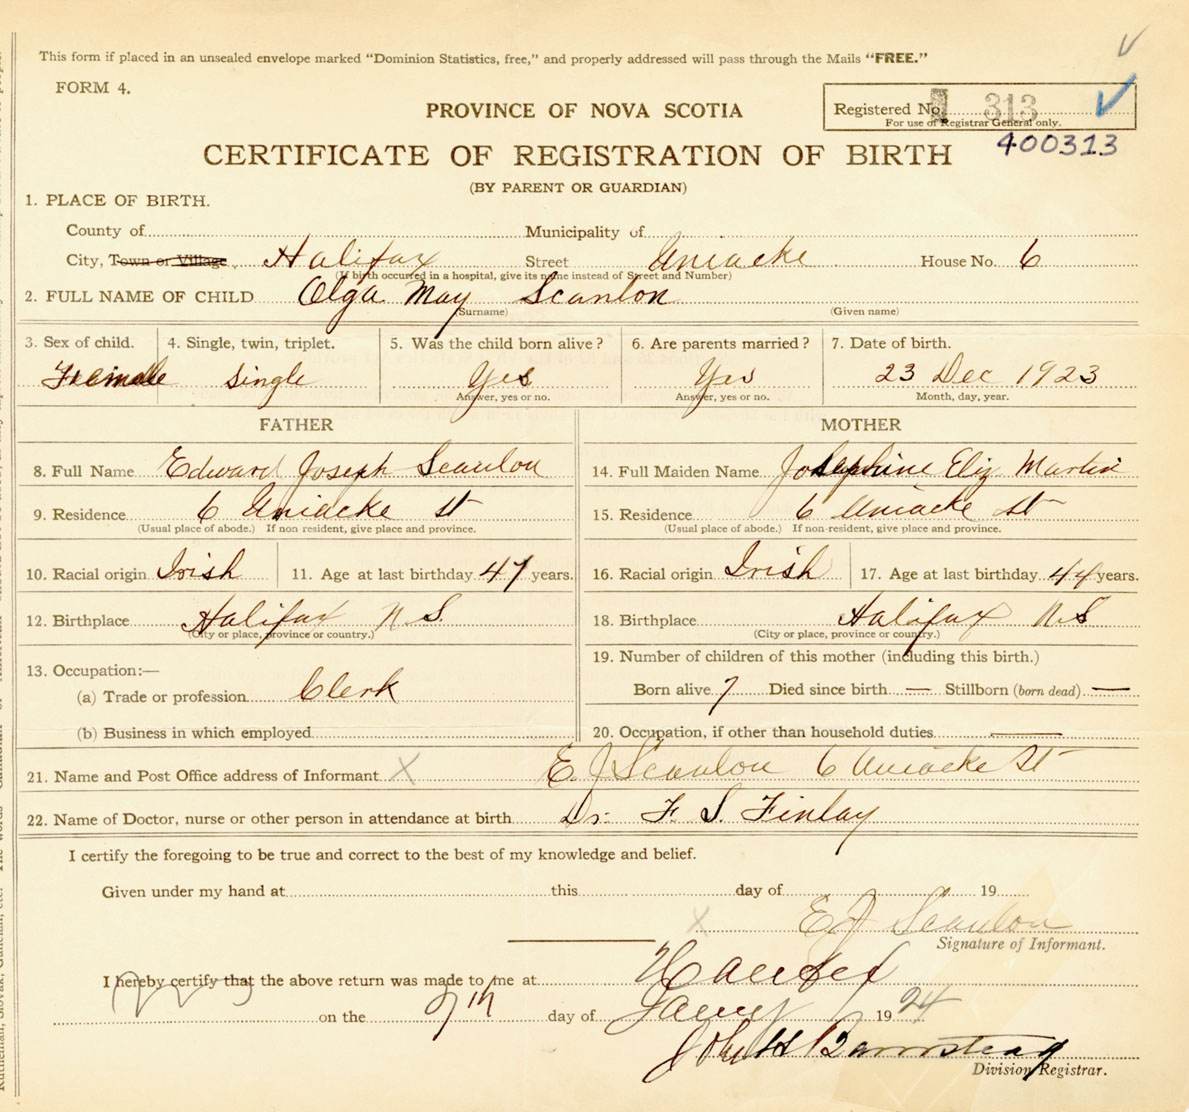 This form if placed in an unsealed envelope marked "Dominion Statistics, free," and properly addressed will pass through the Mails "FREE."
FORM 4.
PROVINCE OF NOVA SCOTIA
Registered No. 313
For use of Registrar General only.
400313
CERTIFICATE OF REGISTRATION OF BIRTH
(BY PARENT OR GUARDIAN)
1. PLACE OF BIRTH.
County of Municipality of
City, Town or Village Halifax Street Uniacke House No. 6
(If birth occurred in a hospital, give its name instead of Street and Number)
2. FULL NAME OF CHILD Olga May Scanlon
(Surname) (Given name)
3. Sex of child. 4. Single, twin, triplet. 5. Was the child born alive? 6. Are parents married? 7. Date of birth.
Female single Yes Yes 23 Dec 1923
Answer, yes or no. Answer, yes or no. Month, day, year.
FATHER MOTHER
8. Full Name Edward Joseph Scanlon 14. Full Maiden Name Josephine Eliz Martin
9. Residence 6 Uniacke St 15. Residence 6 Uniacke St
(Usual place of abode.) If non resident, give place and province. (Usual place of abode.) If non-resident, give place and province.
10. Racial origin Irish 11. Age at last birthday 47 years. 16. Racial origin Irish 17. Age at last birthday 44 years.
12. Birthplace Halifax N.S. 18. Birthplace Halifax N.S
(City or place, province or country.) (City or place, province or country.)
13. Occupation:— 19. Number of children of this mother (including this birth.)
(a) Trade or profession Clerk Born alive 7 Died since birth — Stillborn (born dead) —
(b) Business in which employed 20. Occupation, if other than household duties —
21. Name and Post Office address of Informant X E. J Scanlon 6 Uniacke St
22. Name of Doctor, nurse or other person in attendance at birth Dr. F. S. Finlay
I certify the foregoing to be true and correct to the best of my knowledge and belief.
Given under my hand at this day of 19
X E J Scanlon
Signature of Informant.
I hereby certify that the above return was made to me at Halifax
on the 9th day of Jany 1924
John H Barnstead
Division Registrar.